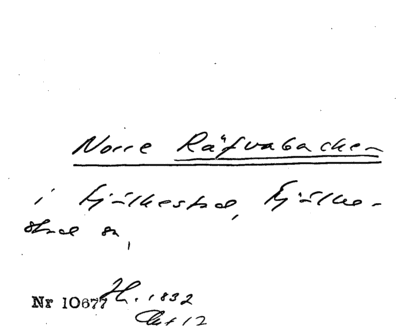 Norre Räfvabacken
i Fjälkestad, Fjälke-
stad sn,
Nr 10677 H. 1832
Akt 12